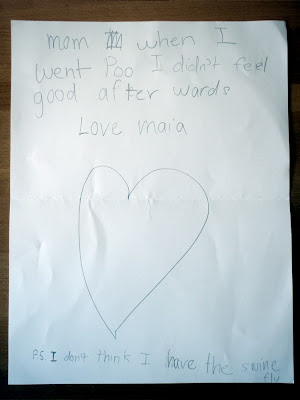 mom when I
went Poo I didn't feel
good after wards
Love maia
P.S. I don't think I have the swine
flu